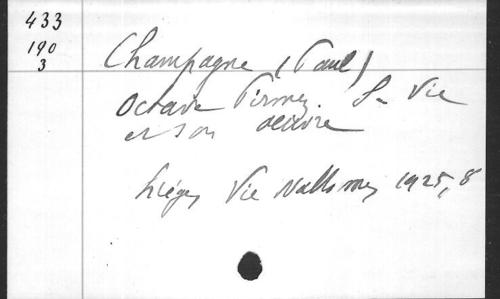 433
190
3
Champagne (Paul)
Octave Pirmez. Sa Vie
et son oeuvre
Liége, Vie Wallonne, 1925, 8